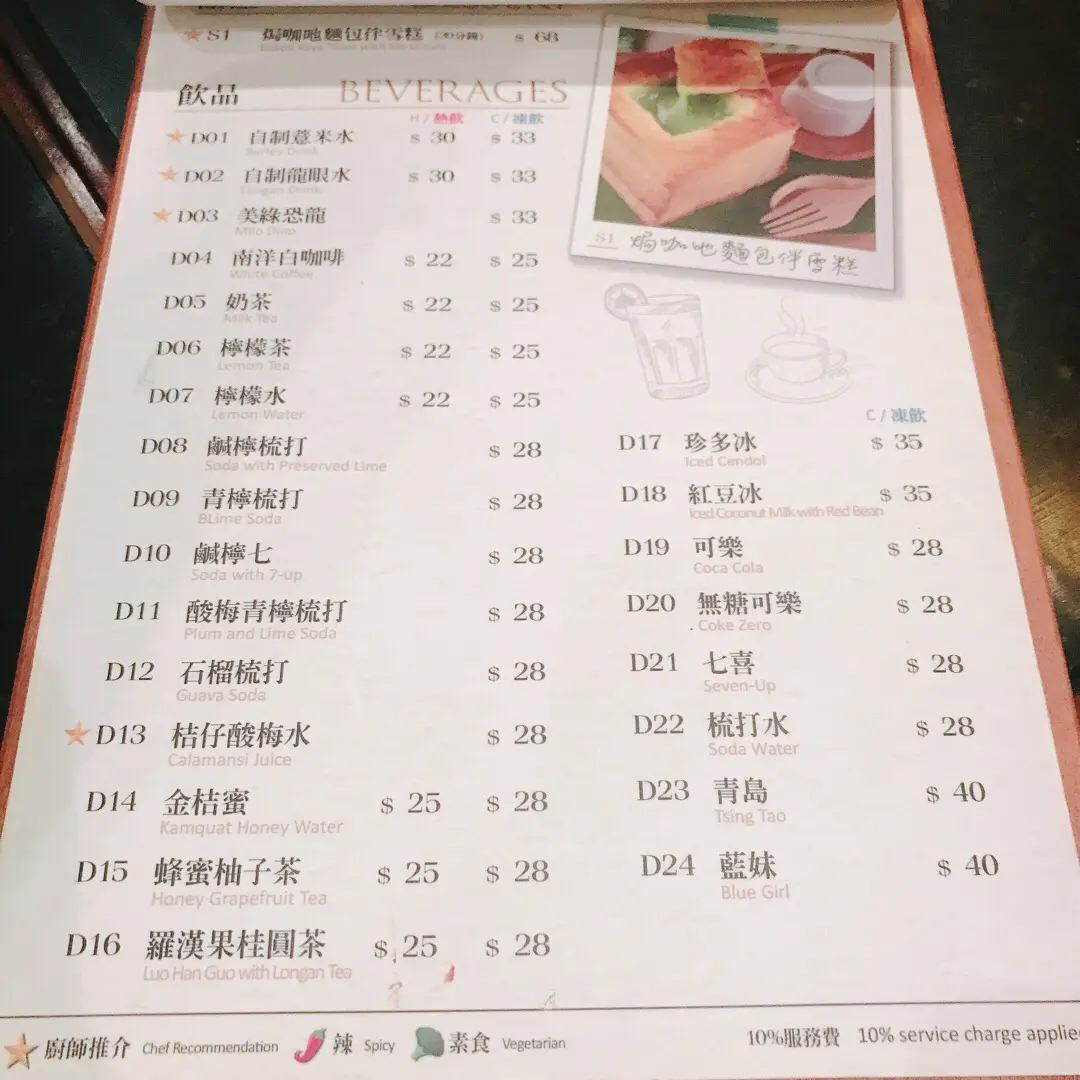 S1 焗咖吔麵包伴雪糕 (20分鐘) $ 68
飲品 BEVERAGES
H / 熱飲 C / 凍飲
D01 自制薏米水 $ 30 $ 33
Barley Drink
D02 自制龍眼水 $ 30 $ 33
Longan Drink
D03 美綠恐龍 $ 33
Milo Dino
D04 南洋白咖啡 $ 22 $ 25
White Coffee
D05 奶茶 $ 22 $ 25
Milk Tea
D06 檸檬茶 $ 22 $ 25
Lemon Tea
D07 檸檬水 $ 22 $ 25
Lemon Water
D08 鹹檸梳打 $ 28
Soda with Preserved Lime
D09 青檸梳打 $ 28
BLime Soda
D10 鹹檸七 $ 28
Soda with 7-up
D11 酸梅青檸梳打 $ 28
Plum and Lime Soda
D12 石榴梳打 $ 28
Guava Soda
D13 桔仔酸梅水 $ 28
Calamansi Juice
D14 金桔蜜 $ 25 $ 28
Kamquat Honey Water
D15 蜂蜜柚子茶 $ 25 $ 28
Honey Grapefruit Tea
D16 羅漢果桂圓茶 $ 25 $ 28
Luo Han Guo with Longan Tea
S1 焗咖吔麵包伴雪糕
C / 凍飲
D17 珍多冰 $ 35
Iced Cendol
D18 紅豆冰 $ 35
Iced Coconut Milk with Red Bean
D19 可樂 $ 28
Coca Cola
D20 無糖可樂 $ 28
Coke Zero
D21 七喜 $ 28
Seven-Up
D22 梳打水 $ 28
Soda Water
D23 青島 $ 40
Tsing Tao
D24 藍妹 $ 40
Blue Girl
廚師推介 Chef Recommendation 辣 Spicy 素食 Vegetarian 10%服務費 10% service charge applie